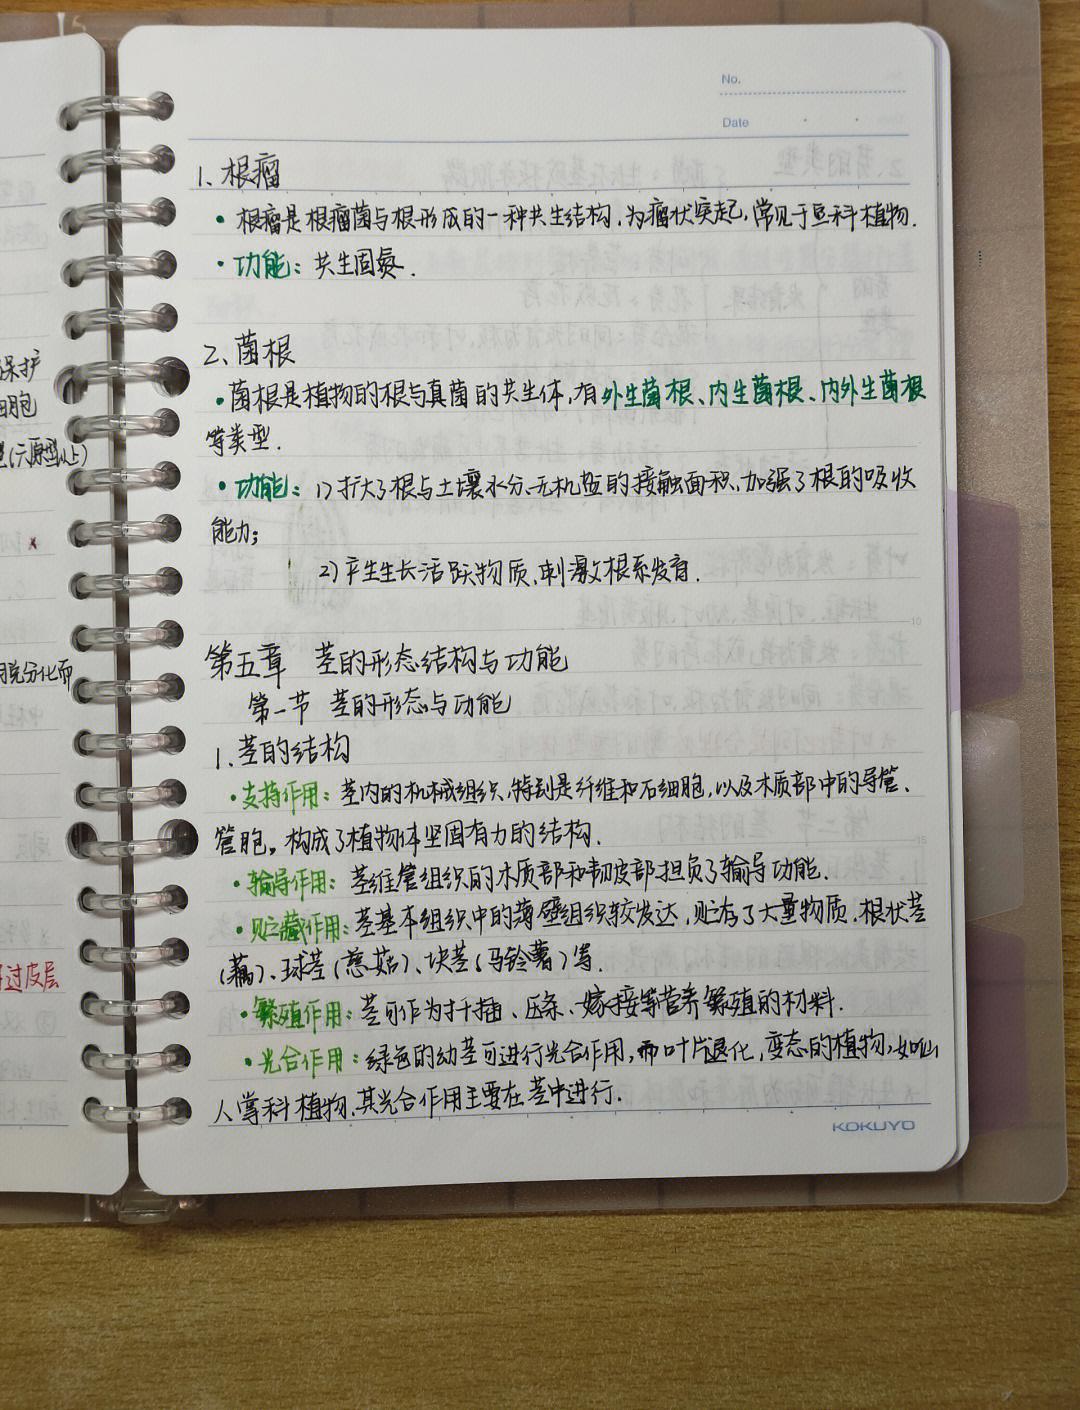 No.
Date
1、根瘤
· 根瘤是根瘤菌与根形成的一种共生结构,为瘤状突起,常见于豆科植物.
· 功能: 共生固氮.
2、菌根
· 菌根是植物的根与真菌的共生体,有外生菌根、内生菌根、内外生菌根
等类型.
· 功能: 1)扩大了根与土壤水分、无机盐的接触面积、加强了根的吸收
能力;
2)产生生长活跃物质、刺激根系发育.
第五章 茎的形态结构与功能
第一节 茎的形态与功能
1、茎的结构
· 支持作用: 茎内的机械组织,特别是纤维和石细胞,以及木质部中的导管、
管胞,构成了植物体坚固有力的结构.
· 输导作用: 茎维管组织的木质部和韧皮部担负了输导功能.
· 贮藏作用: 茎基本组织中的薄壁组织较发达,贮存了大量物质,根状茎
(藕)、球茎(慈菇)、块茎(马铃薯)等.
· 繁殖作用: 茎可作为扦插、压条、嫁接等营养繁殖的材料.
· 光合作用: 绿色的幼茎可进行光合作用,而叶片退化,变态的植物,如仙
人掌科植物、其光合作用主要在茎中进行.
KOKUYO
保护
细胞
型(六原型以上)
脱分化而
过皮层
10
15